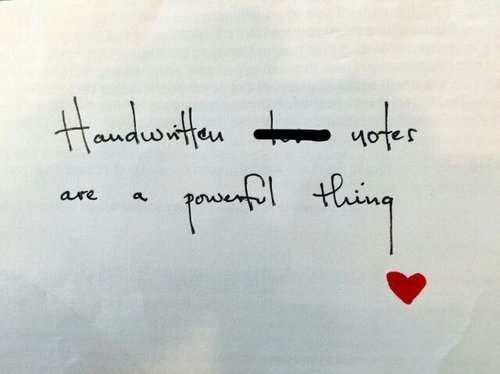 Handwritten notes
are a powerful thing